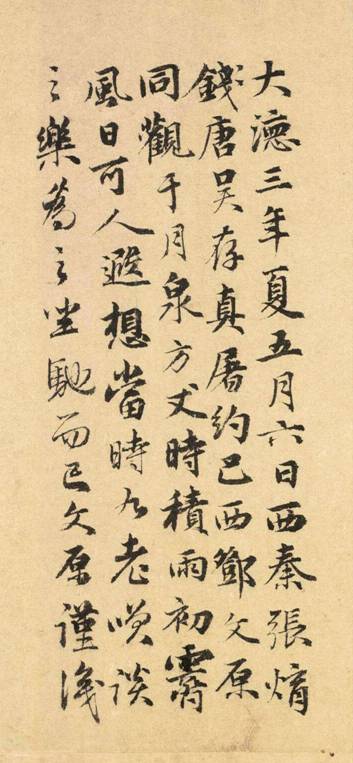 大德三年夏五月六日西秦張焴
錢唐吳存真屠約巴西鄧文原
同觀于月泉方丈時積雨初霽
風日可人遐想當時九老嘆談
之樂為之坐馳而已文原謹識